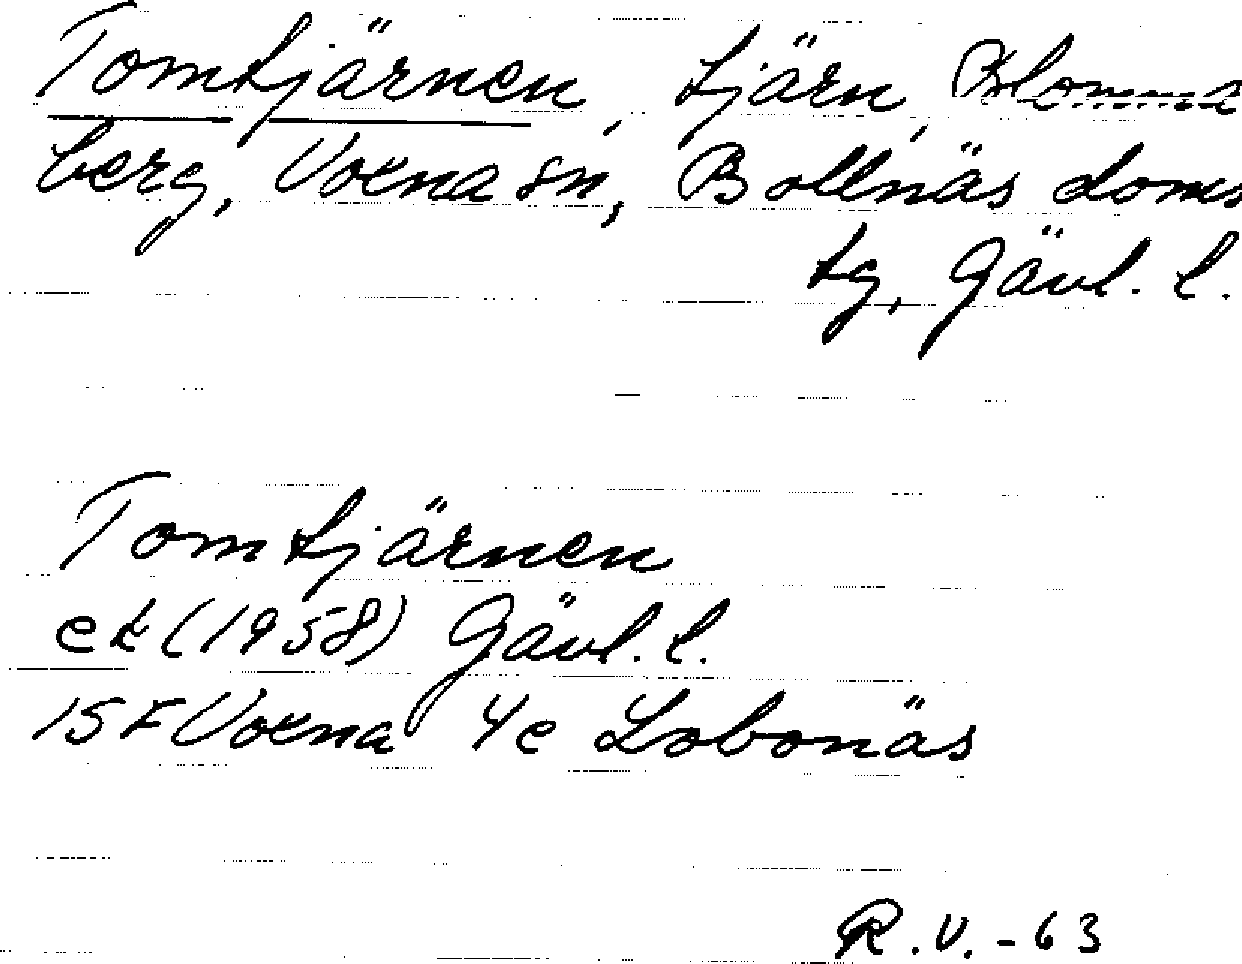 Tomtjärnen, tjärn, Blomma
berg, Voxna sn, Bollnäs doms
tg, Gävl. l.
Tomtjärnen
ek (1958) Gävl. l.
15F Voxna 4e Lobonäs
R.V. - 63